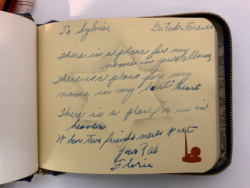 To Sylvia,
There is a place for my
name in your album
There is a place for my
name in my heart
There is a place for us in
heaven
Where two friends never part
Your Pal
Gloria